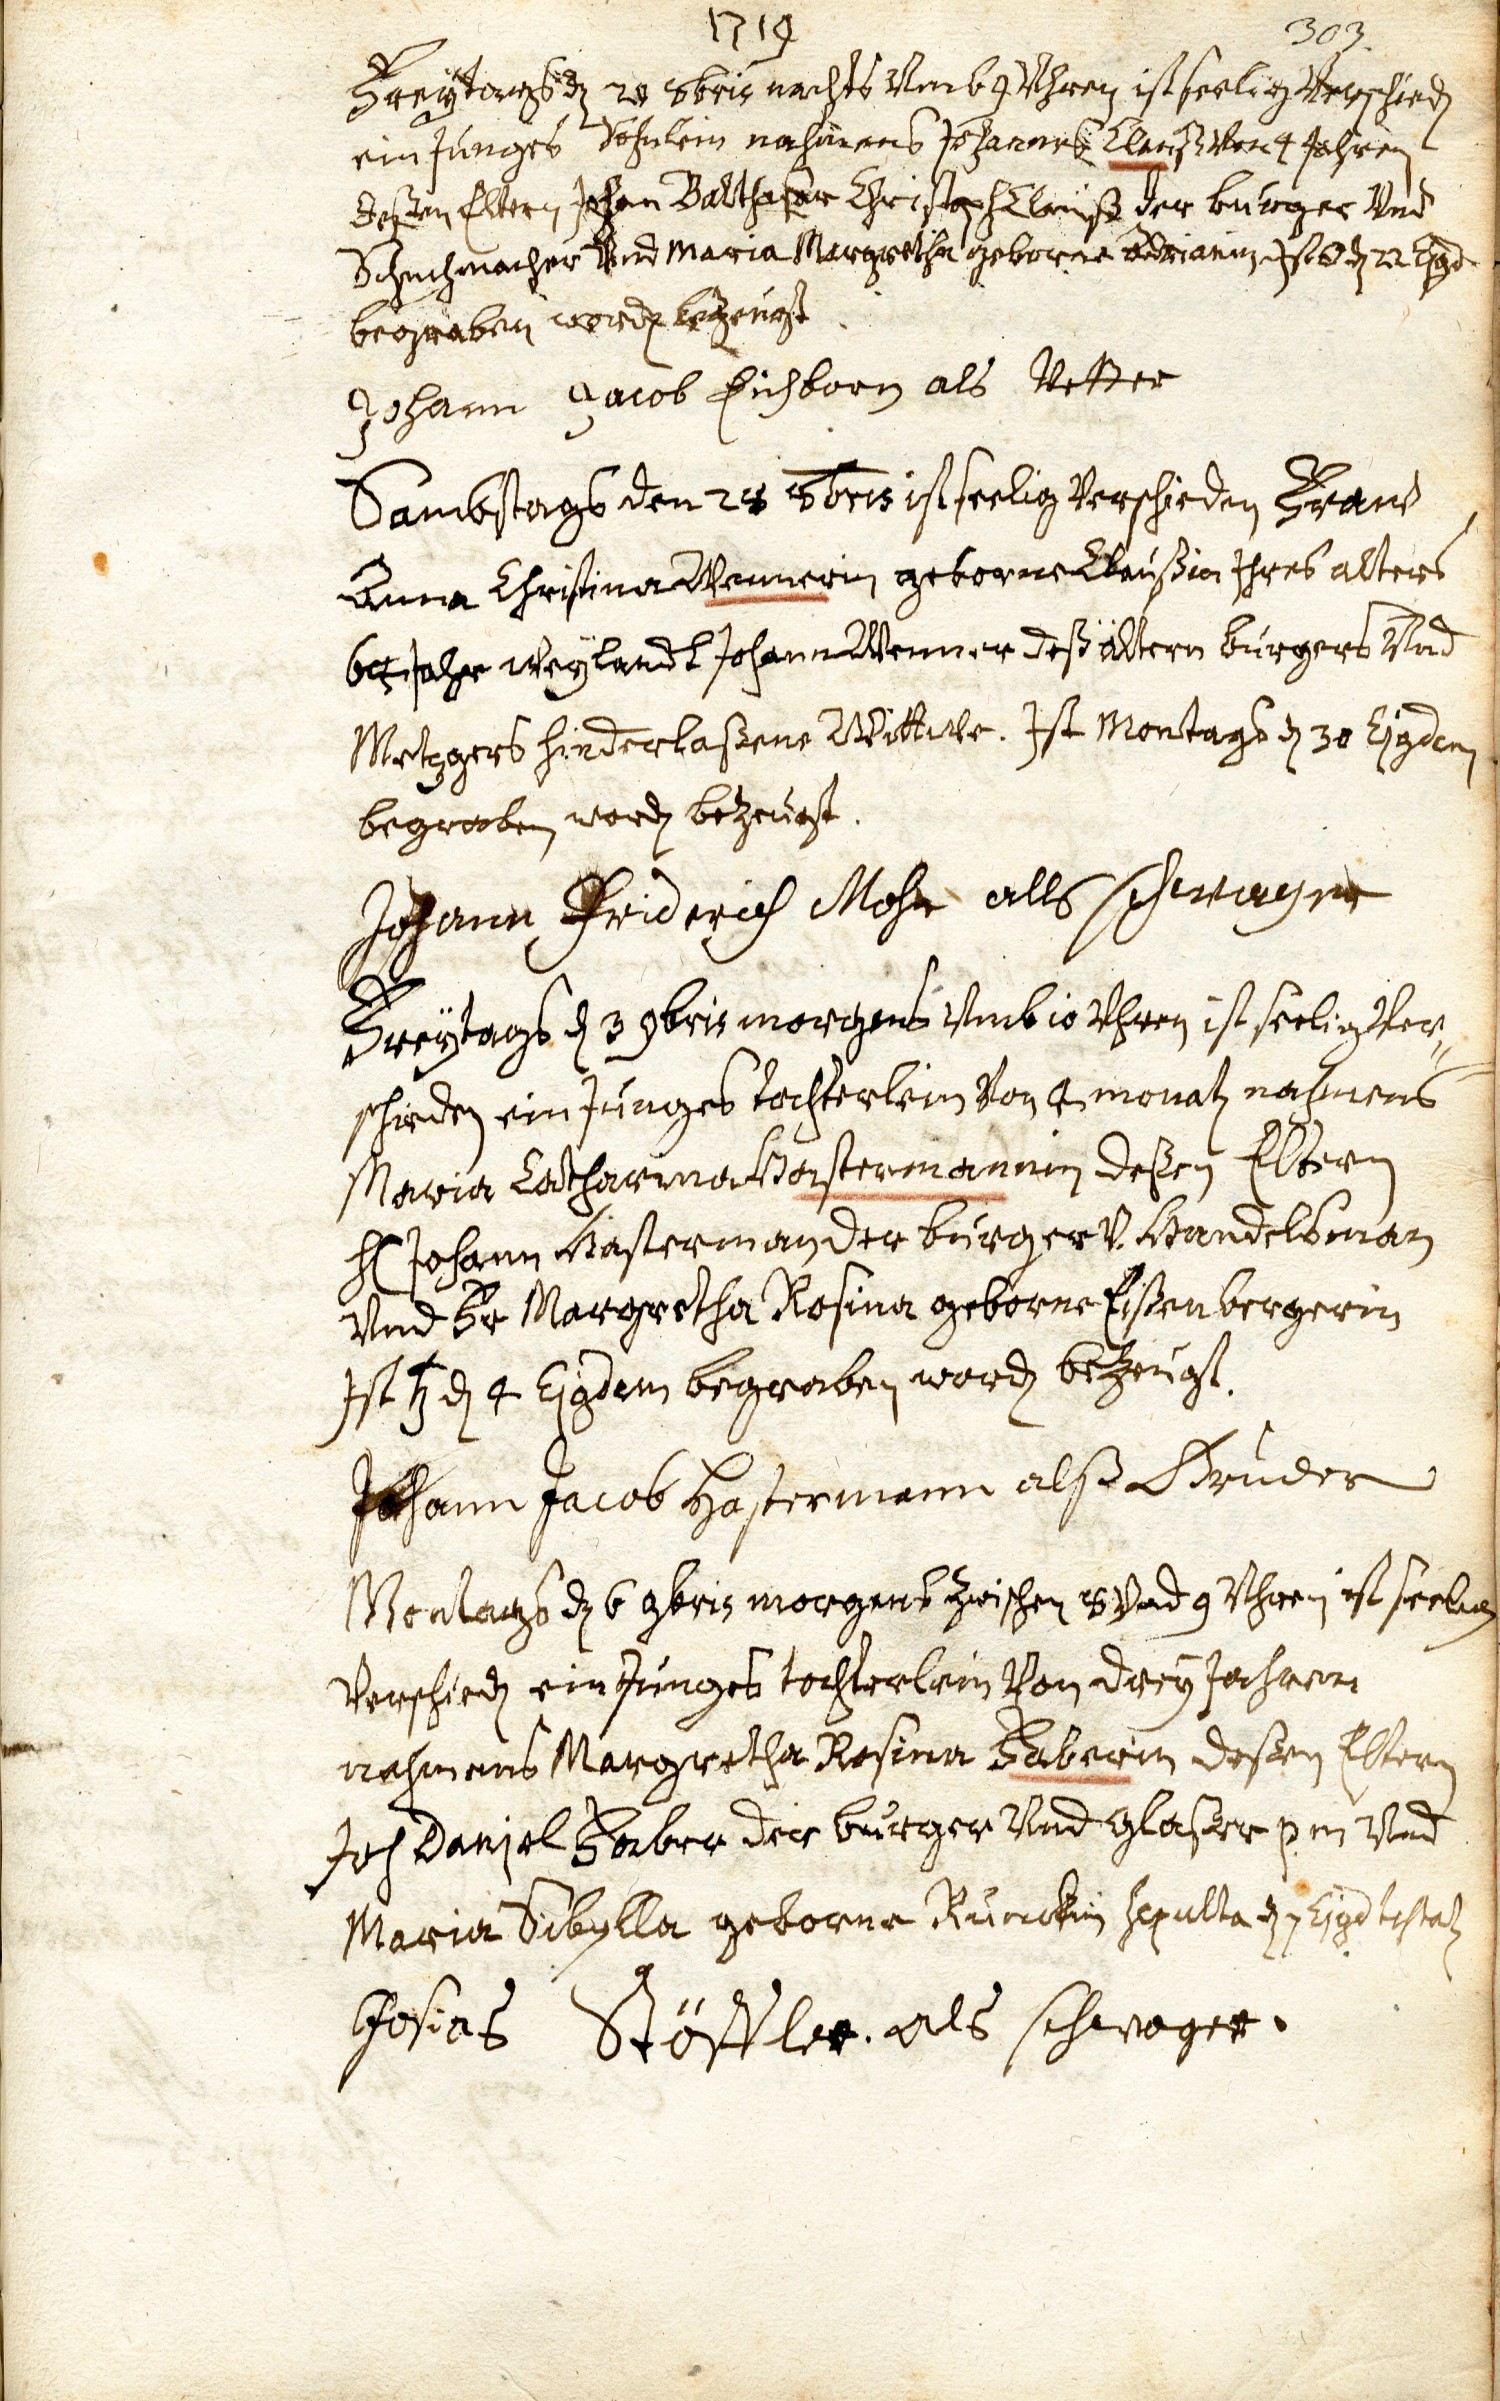 1719
303.
Freÿtags dꝫ 20 8bris nachts Umb 9 Uhren ist seelig Verschiedꝫ
ein Junges Söhnlein nahmens Johannes Clauß Von 4 Jahren
deßen Eltern Johan Balthasar Christoph Clauß der burger Und
Schuhmacher Und Maria Margretha geborne Adrianin Ist ☉ dꝫ 22 Ejꝰd
begraben wordꝫ bezeugt
Johann Jacob Eichborn als Vetter
Sambstags den 28 8bris ist seelig Verschieden Fraw
Anna Christina Wennerin geborne Claußin Ihres alters
64 Jahr weÿlandt Johann Wenner deß ältern burgers Und
Metzgers hinderlaßene Wittwe. Ist Montags dꝫ 30 Ejgdem
begraben wordꝫ bezeugt.
Johann Friderich Mohr alls schwager
Freÿtags dꝫ 3 9bris morgens Umb 10 Uhren ist seelig Ver,,
schieden ein Junges tochterlein Von 4 monatꝫ nahmens
Maria Catharina Hastermannin deßen Eltern
H Johann Hasterman der burger V. Handelsman
Und Fr Margretha Rosina geborne Eißenbergerin
Ist ♄ dꝫ 4 Ejgdem begraben wordꝫ bezeugt.
Johann Jacob Hastermann alß Bruder
Montags dꝫ 6 9bris morgens zwischen 8 Und 9 Uhren ist seelig
Verschiedꝫ ein Junges tochterlein Von dreÿ Jahren
nahmens Margretha Rosina Faberin deßen Eltern
Joh Danjel Faber der burger Und glaßer p. m Und
Maria Sibylla geborne Runckin sepulta dꝫ 7 Ejgd testatꝫ
Josias Stöffler. als schwager.